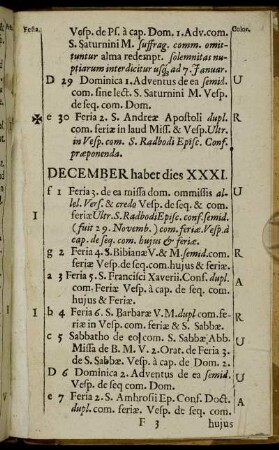 Festa. Vesp. de Pſ. à cap. Dom. 1. Adv. com. Color.
S. Saturnini M. ſuffrag. comm. omit-
tuntur alma redempt. ſolemnitas nu-
ptiarum interdicitur uſq; ad 7. Januar.
D 29 Dominica 1. Adventus de ea ſemid. U
com. ſine lect. S. Saturnini M. Vesp.
de ſeq. com. Dom.
✠ e 30 Feria 2. S. Andreæ Apoſtoli dupl. R
com. feriæ in laud Miſſ. & Vesp. Ultr.
in Vesp. com. S. Radbodi Epiſc. Conf.
præponenda.
DECEMBER habet dies XXXI.
f 1 Feria 3. de ea miſſa dom. ommiſſis al- U
lel. Verſ. & credo Vesp. de ſeq. & com.
I feriæ Ultr. S. Radbodi Epiſc. conf. ſemid.
(fuit 29. Novemb.) com. feriæ. Vesp. à
cap. de ſeq. com. hujus & feriæ.
g 2 Feria 4. S. Bibianæ V. & M. ſemid. com. R
feriæ Vesp. de ſeq. com. hujus & feriæ.
a 3 Feria 5. S. Franciſci Xaverii. Conf. dupl. A
com. Feriæ Vesp. à cap. de ſeq. com.
hujus & Feriæ.
I b 4 Feria 6. S. Barbaræ V. M. dupl com. fe- R
riæ in Vesp. com. feriæ & S. Sabbæ.
c 5 Sabbatho de eo com. S. Sabbæ Abb. U
Miſſa de B. M. V. 2. Orat. de Feria 3.
de S. Sabbæ. Vesp. à cap. de Dom. 2.
D 6 Dominica 2. Adventus de ea ſemid. U
Vesp. de ſeq com. Dom.
e 7 Feria 2. S. Ambroſii Ep. Conf. Doct. A
dupl. com. feriæ. Vesp. de ſeq. com.
F 3 hujus